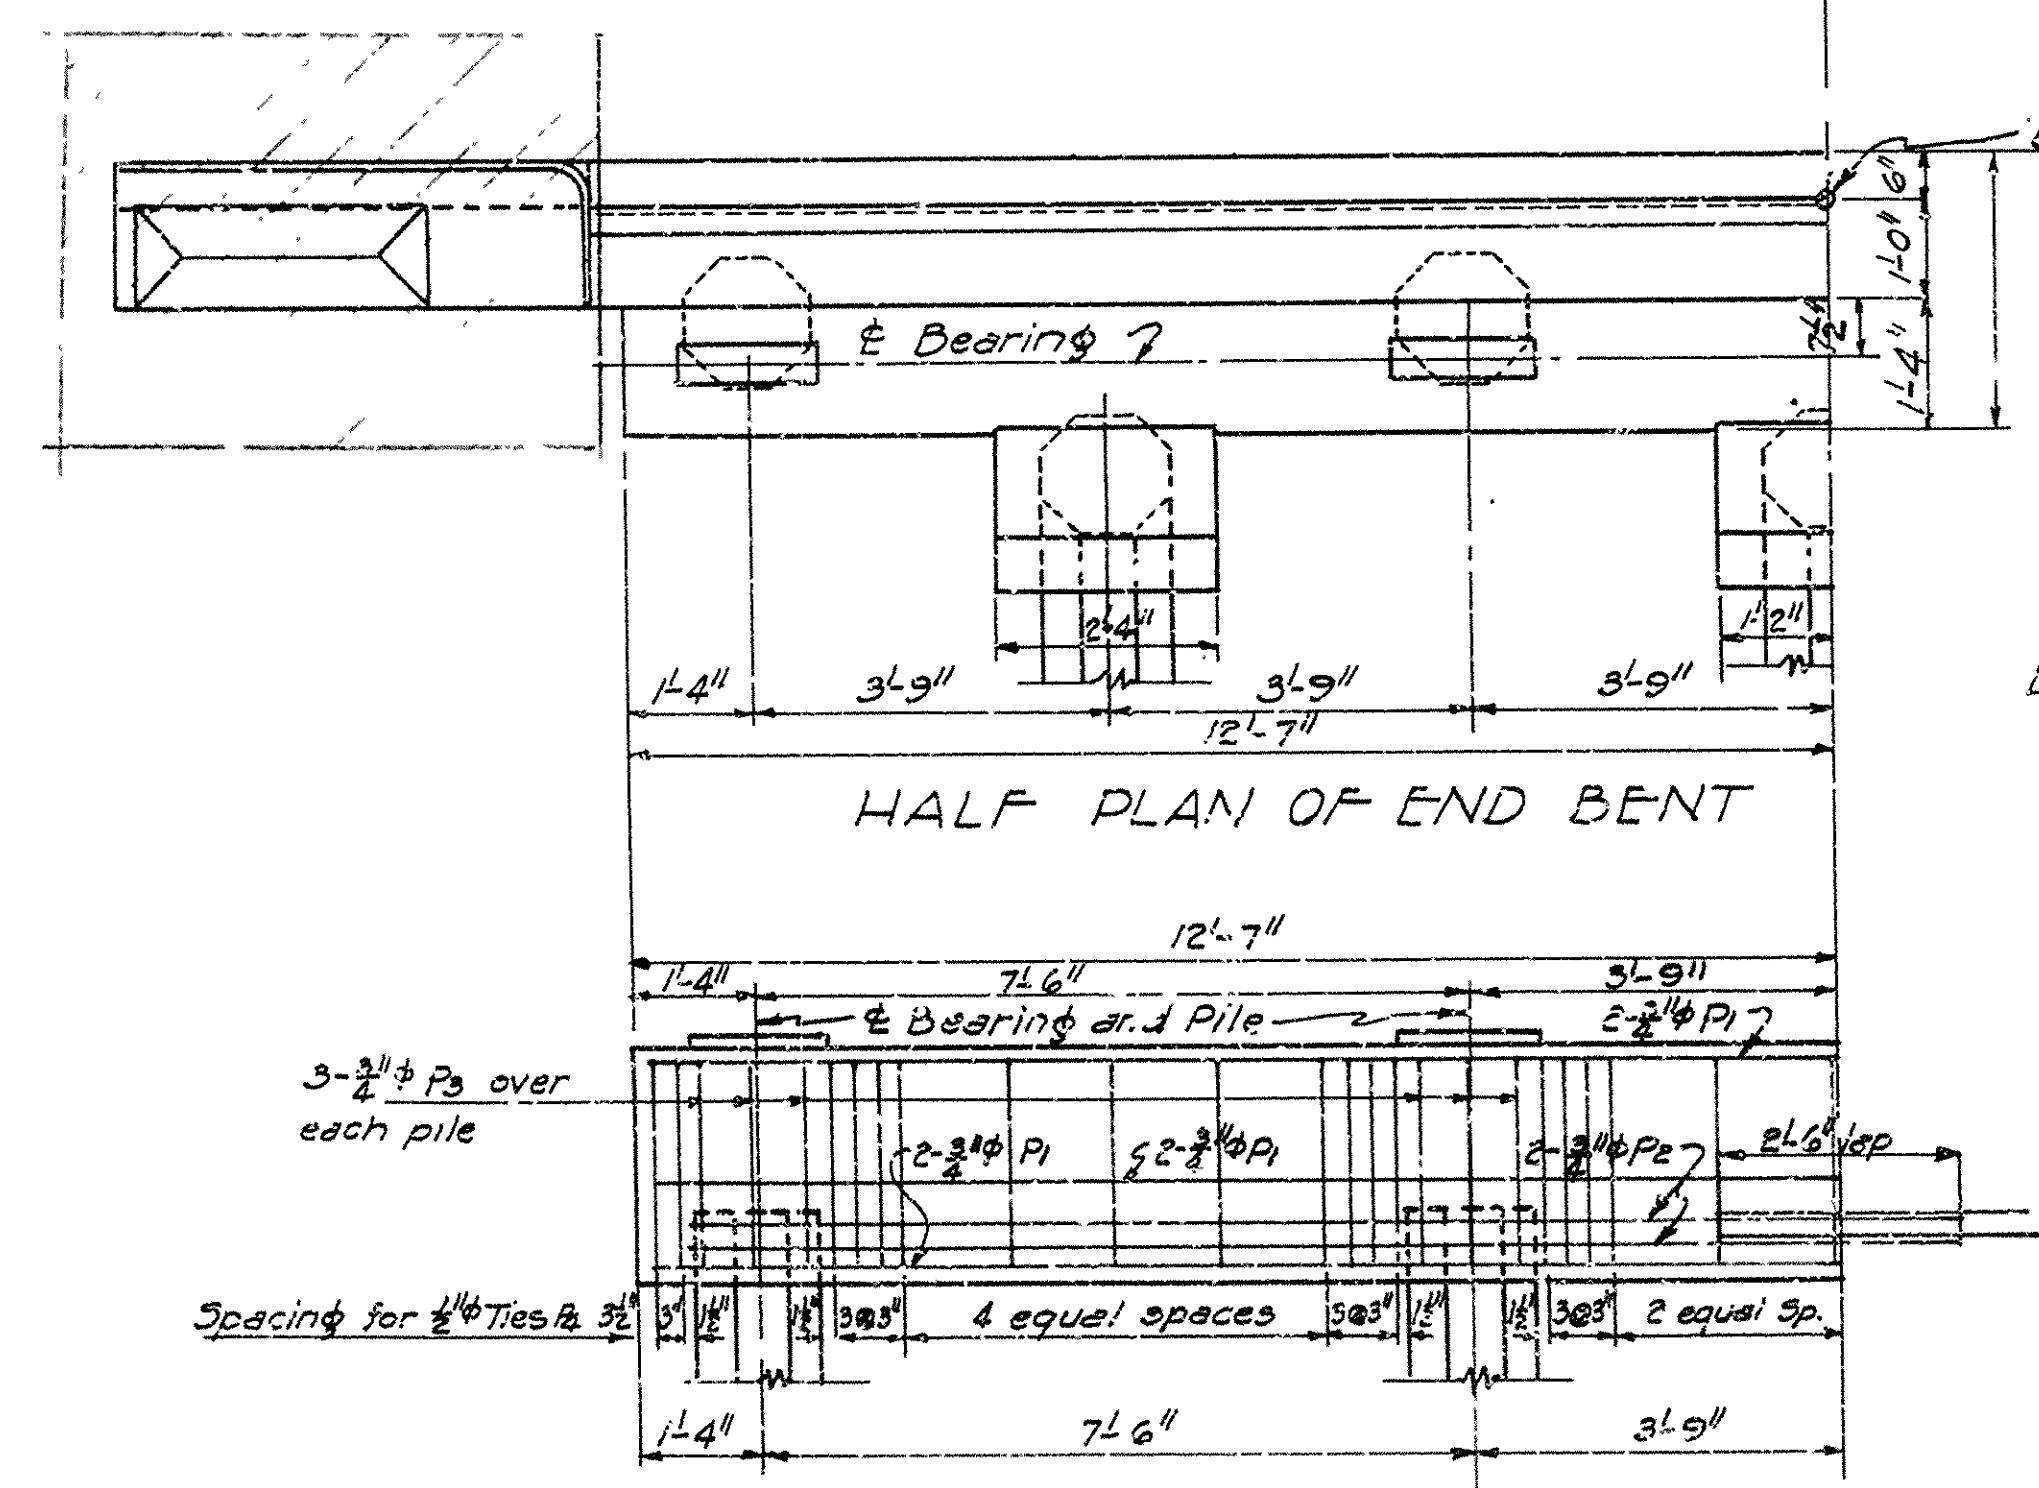 6"
1'-0"
℄ Bearing
7½"
1'-4"
2'-4"
1'-2"
1'-4" 3'-9" 3'-9" 3'-9"
12'-7"
HALF PLAN OF END BENT
12'-7"
1'-4" 7'-6" 3'-9"
℄ Bearing and Pile 2-¾"ϕ P1
3-¾"ϕ P3 over
each pile
2-¾"ϕ P1 2-¾"ϕ P1 2-¾"ϕ P2 2'-6" lap
Spacing for ½"ϕ Ties P4 3½" 3" 1½" 1½" 3@3" 4 equal spaces 3@3" 1½" 1½" 3@3" 2 equal Sp.
1'-4" 7'-6" 3'-9"